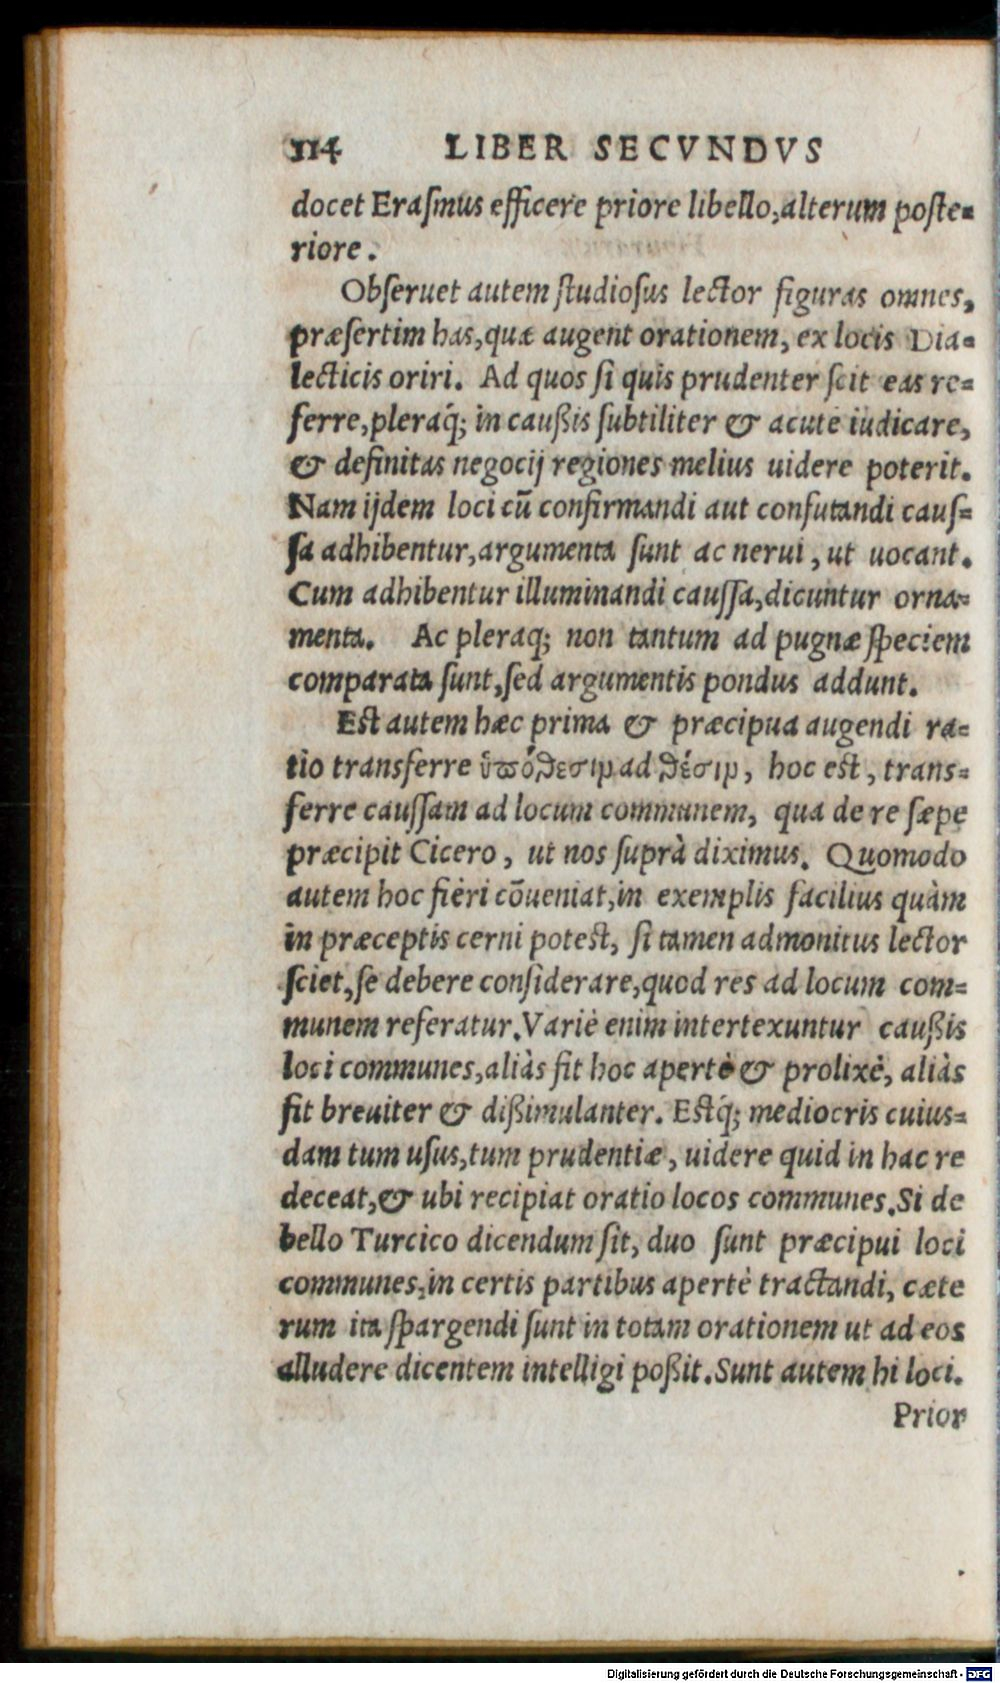 114 LIBER SECVNDVS
docet Eraſmus efficere priore libello, alterum poſte=
riore.
Obſeruet autem ſtudioſus lector figuras omnes,
præſertim has, quæ augent orationem, ex locis Dia=
lecticis oriri. Ad quos ſi quis prudenter ſcit eas re=
ferre, pleraq́; in cauſsis ſubtiliter & acutè iudicare,
& definitas negocij regiones melius uidere poterit.
Nam ijdem loci cū confirmandi aut confutandi cauſ=
ſa adhibentur, argumenta ſunt ac nerui, ut uocant.
Cum adhibentur illuminandi cauſſa, dicuntur orna=
menta. Ac pleraq; non tantum ad pugnæ ſpeciem
comparata ſunt, ſed argumentis pondus addunt.
Eſt autem hæc prima & præcipua augendi ra=
tio transferre ὑπόθεσιν ad θέσιν, hoc eſt, trans=
ferre cauſſam ad locum communem, qua de re ſæpe
præcipit Cicero, ut nos ſuprà diximus. Quomodo
autem hoc fieri cōueniat, in exemplis facilius quàm
in præceptis cerni poteſt, ſi tamen admonitus lector
ſciet, ſe debere conſiderare, quod res ad locum com=
munem referatur. Variè enim intertexuntur cauſsis
loci communes, aliàs fit hoc apertè & prolixè, aliàs
fit breuiter & diſsimulanter. Eſtq́; mediocris cuius=
dam tum uſus, tum prudentiæ, uidere quid in hac re
deceat, & ubi recipiat oratio locos communes. Si de
bello Turcico dicendum ſit, duo ſunt præcipui loci
communes, in certis partibus apertè tractandi, cæte
rum ita ſpargendi ſunt in totam orationem ut ad eos
alludere dicentem intelligi poſsit. Sunt autem hi loci.
Prior
Digitalisierung gefördert durch die Deutsche Forschungsgemeinschaft - DFG